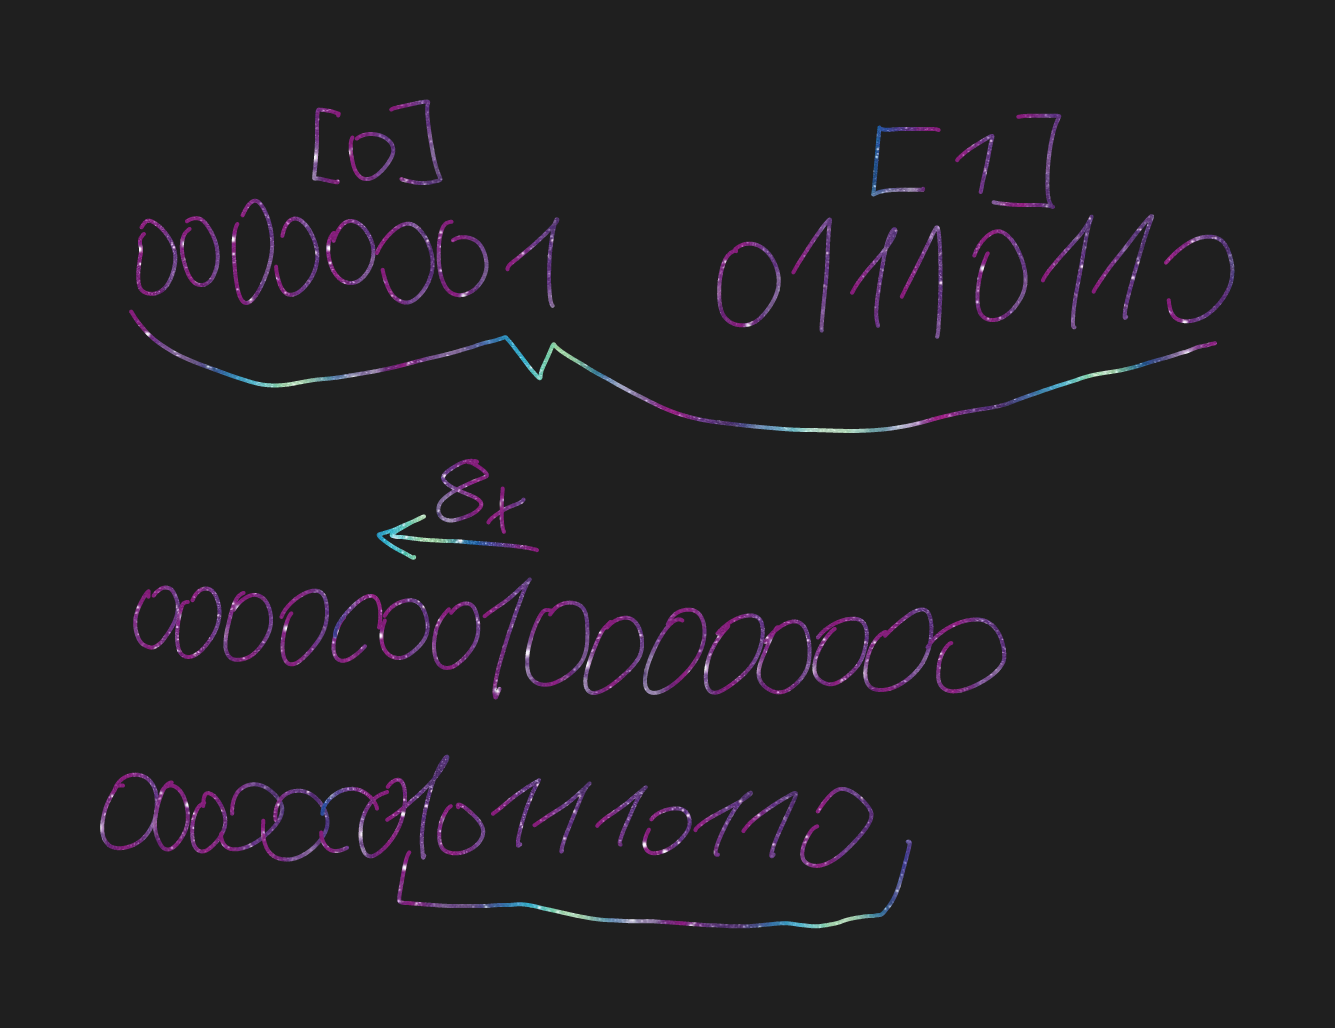 [0] [1]
00000001 01110110
8x
0000000100000000
0000000101110110